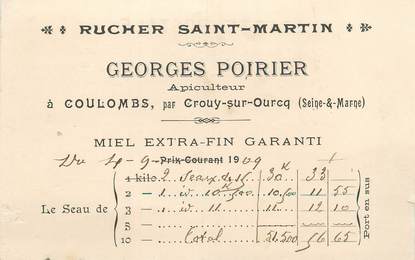 RUCHER SAINT-MARTIN
GEORGES POIRIER
Apiculteur
à COULOMBS, par Crouy-sur-Ourcq (Seine-&-Marne)
MIEL EXTRA-FIN GARANTI
Du 4-9 Prix-Courant 1909
1 kilo 2 Seaux 30k 33
2 - 1 id 10k500 10,500 11 55
Le Seau de 3 - 1 id 11 11 12 10 Port en sus
5 -
10 - Total 51.500 56 65